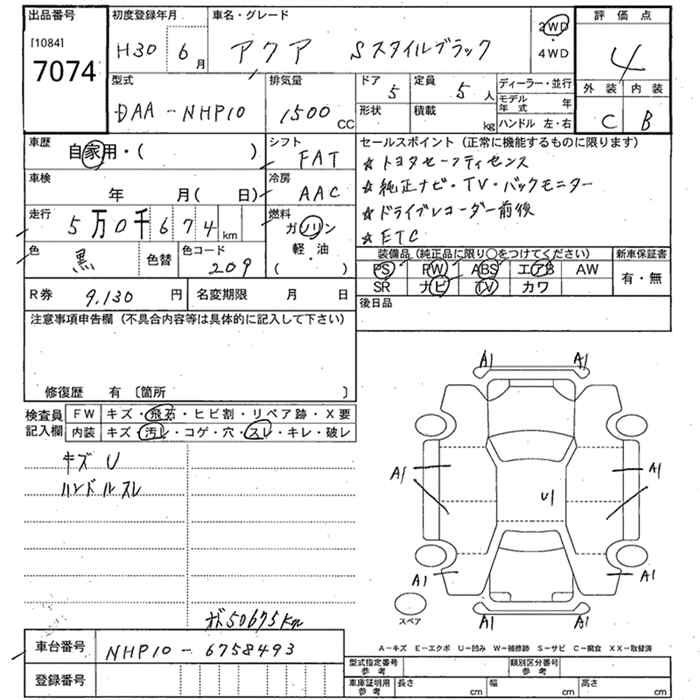 出品番号
[1084]
7074
初度登録年月
H30 6月
車名・グレード
アクア Sスタイルブラック
2WD
・
4WD
評価点
4
外装 内装
C B
型式
DAA-NHP10
排気量
1500 CC
ドア 5
定員 5人
形状
積載 kg
ディーラー・並行
モデル年式 年
ハンドル 左・右
車歴
自家用・( )
シフト
FAT
車検
年 月( 日)
冷房
AAC
走行
5万0千674km
燃料
ガソリン
軽・油
( )
色
黒
色替
色コード
209
セールスポイント(正常に機能するものに限ります)
☆トヨタセーフティセンス
☆純正ナビ・TV・バックモニター
☆ドライブレコーダー前後
☆ETC
装備品(純正品に限り○をつけてください)
PS PW ABS エアB AW
SR ナビ TV カワ
新車保証書
有・無
R券 9,130円
名変期限 月 日
後日品
注意事項申告欄(不具合内容等は具体的に記入して下さい)
修復歴 有〔箇所 〕
検査員
記入欄
FW キズ・飛石・ヒビ割・リペア跡・X要
内装 キズ・汚レ・コゲ・穴・スレ・キレ・破レ
キズ U
ハンドルスレ
A1 A1
A1 A1
U1
A1 A1
A1 A1
スペア
50675Km
A-キズ E-エクボ U-凹み W-補修跡 S-サビ C-腐食 XX-取替済
車台番号 NHP10-6758493
登録番号
型式指定番号
参考
類別区分番号
参考
車庫証明用
参考
長さ cm 幅 cm 高さ cm